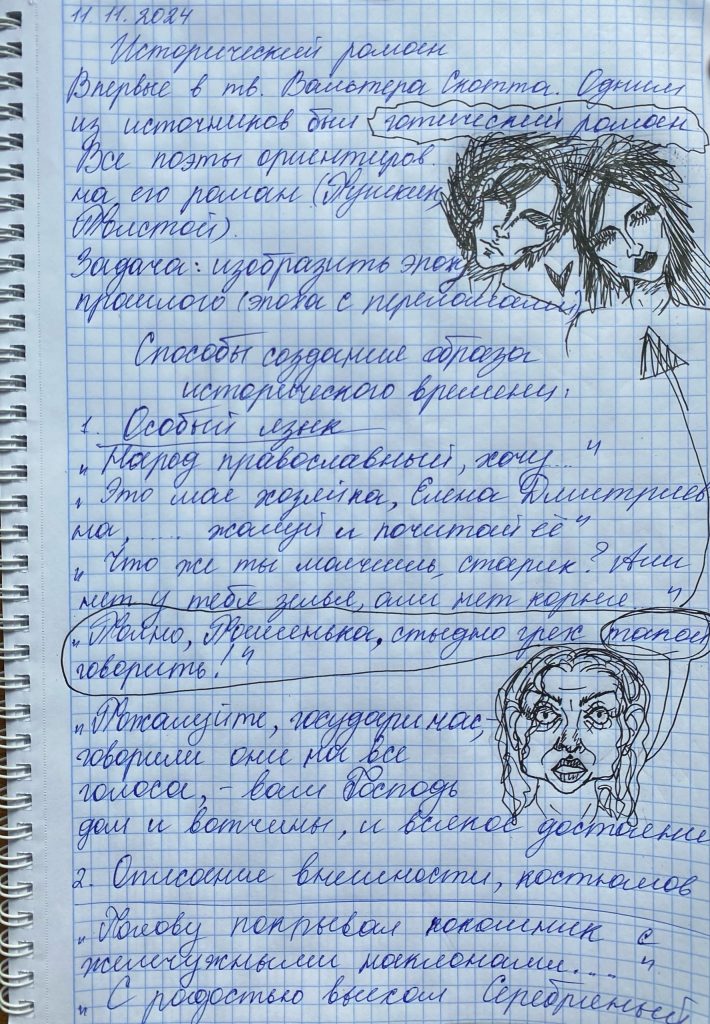 11.11.2024
Исторический роман
Впервые в тв. Вальтера Скотта. Одним
из источников был готический роман
Все поэты ориентиров
на его роман (Пушкин,
Толстой).
Задача: изобразить эпоху
прошлого (эпоха с переломами)
Способы создания образа
исторического времени:
1. Особый язык
„Народ православный, хочу..."
„Это моя хозяйка, Елена Дмитриев
на, ..... жалуй и почитай её"
„Что же ты молчишь, старик? Али
нет у тебя зелья, али нет корне... "
„Полно, Пашенька, стыдно грех такой
говорить!"
„Пожалуйте, государи нас,
говорили они на все
голоса, - вам Господь
дом и вотчины, и всякое достояние
2. Описание внешности, костюмов
„Голову покрывал кокошник с
жемчужными наклонами.... "
„С радостью выехал Серебряный